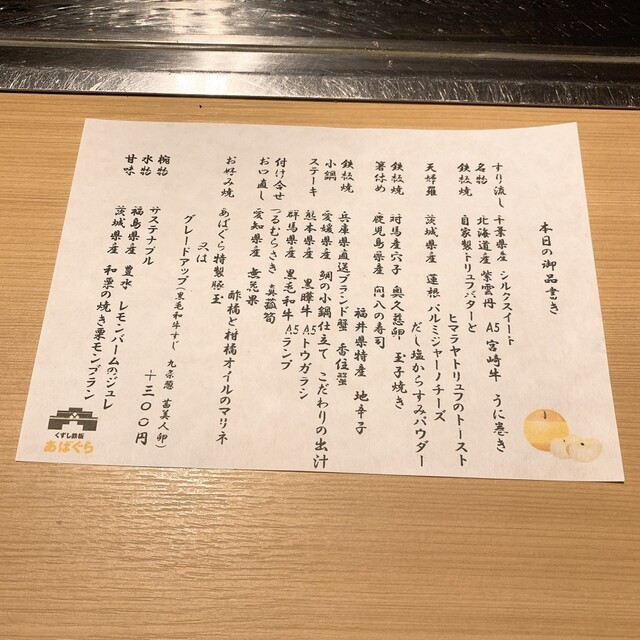 本日の御品書き
すり流し 千葉県産 シルクスイート
名物 北海道産 紫雲丹 A5宮崎牛 うに巻き
鉄板焼 自家製トリュフバターと
ヒマラヤトリュフのトースト
天婦羅 茨城県産 蓮根 パルミジャーノチーズ
だし塩からすみパウダー
鉄板焼 対馬産穴子 奥久慈卵 玉子焼き
箸休め 鹿児島県産 関八の寿司
福井県特産 地辛子
鉄板焼 兵庫県直送ブランド蟹 香住蟹
小鍋 愛媛県産 鯛の小鍋仕立て こだわりの出汁
ステーキ 熊本県産 黒樺牛 A5トウガラシ
群馬県産 黒毛和牛 A5ランプ
付け合せ つるむらさき 真菰筍
お口直し 愛知県産 無花果
酢橘と柑橘オイルのマリネ
お好み焼 あばぐら特製豚玉
又は
グレードアップ(黒毛和牛すじ 九条葱 茜美人卵)
+1300円
椀物 サステナブル
水物 福島県産 豊水 レモンバームのジュレ
甘味 茨城県産 和栗の焼き栗モンブラン
くずし鉄板
あばぐら